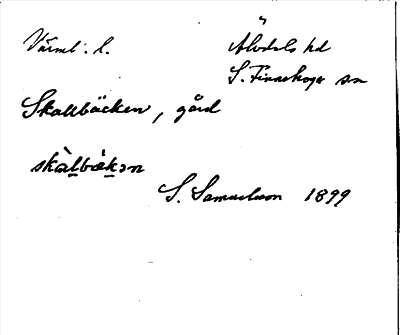 Värml. l. Älvdals hd
S. Finnskoga sn
Skallbäcken, gård
skàlbæ̀kən
S. Samuelsson 1899